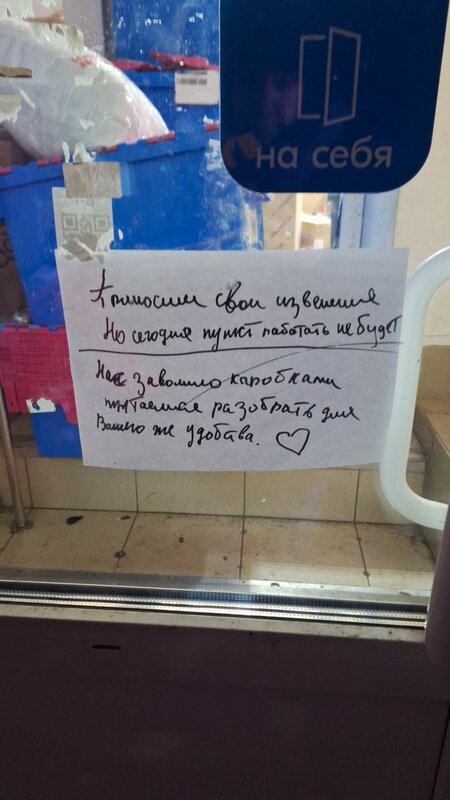 на себя
Приносим свои извенения
Но сегодня пункт работать не будет
Нас заволило каробками
пытаемся разобрать для
Вашего же удобства. ♡